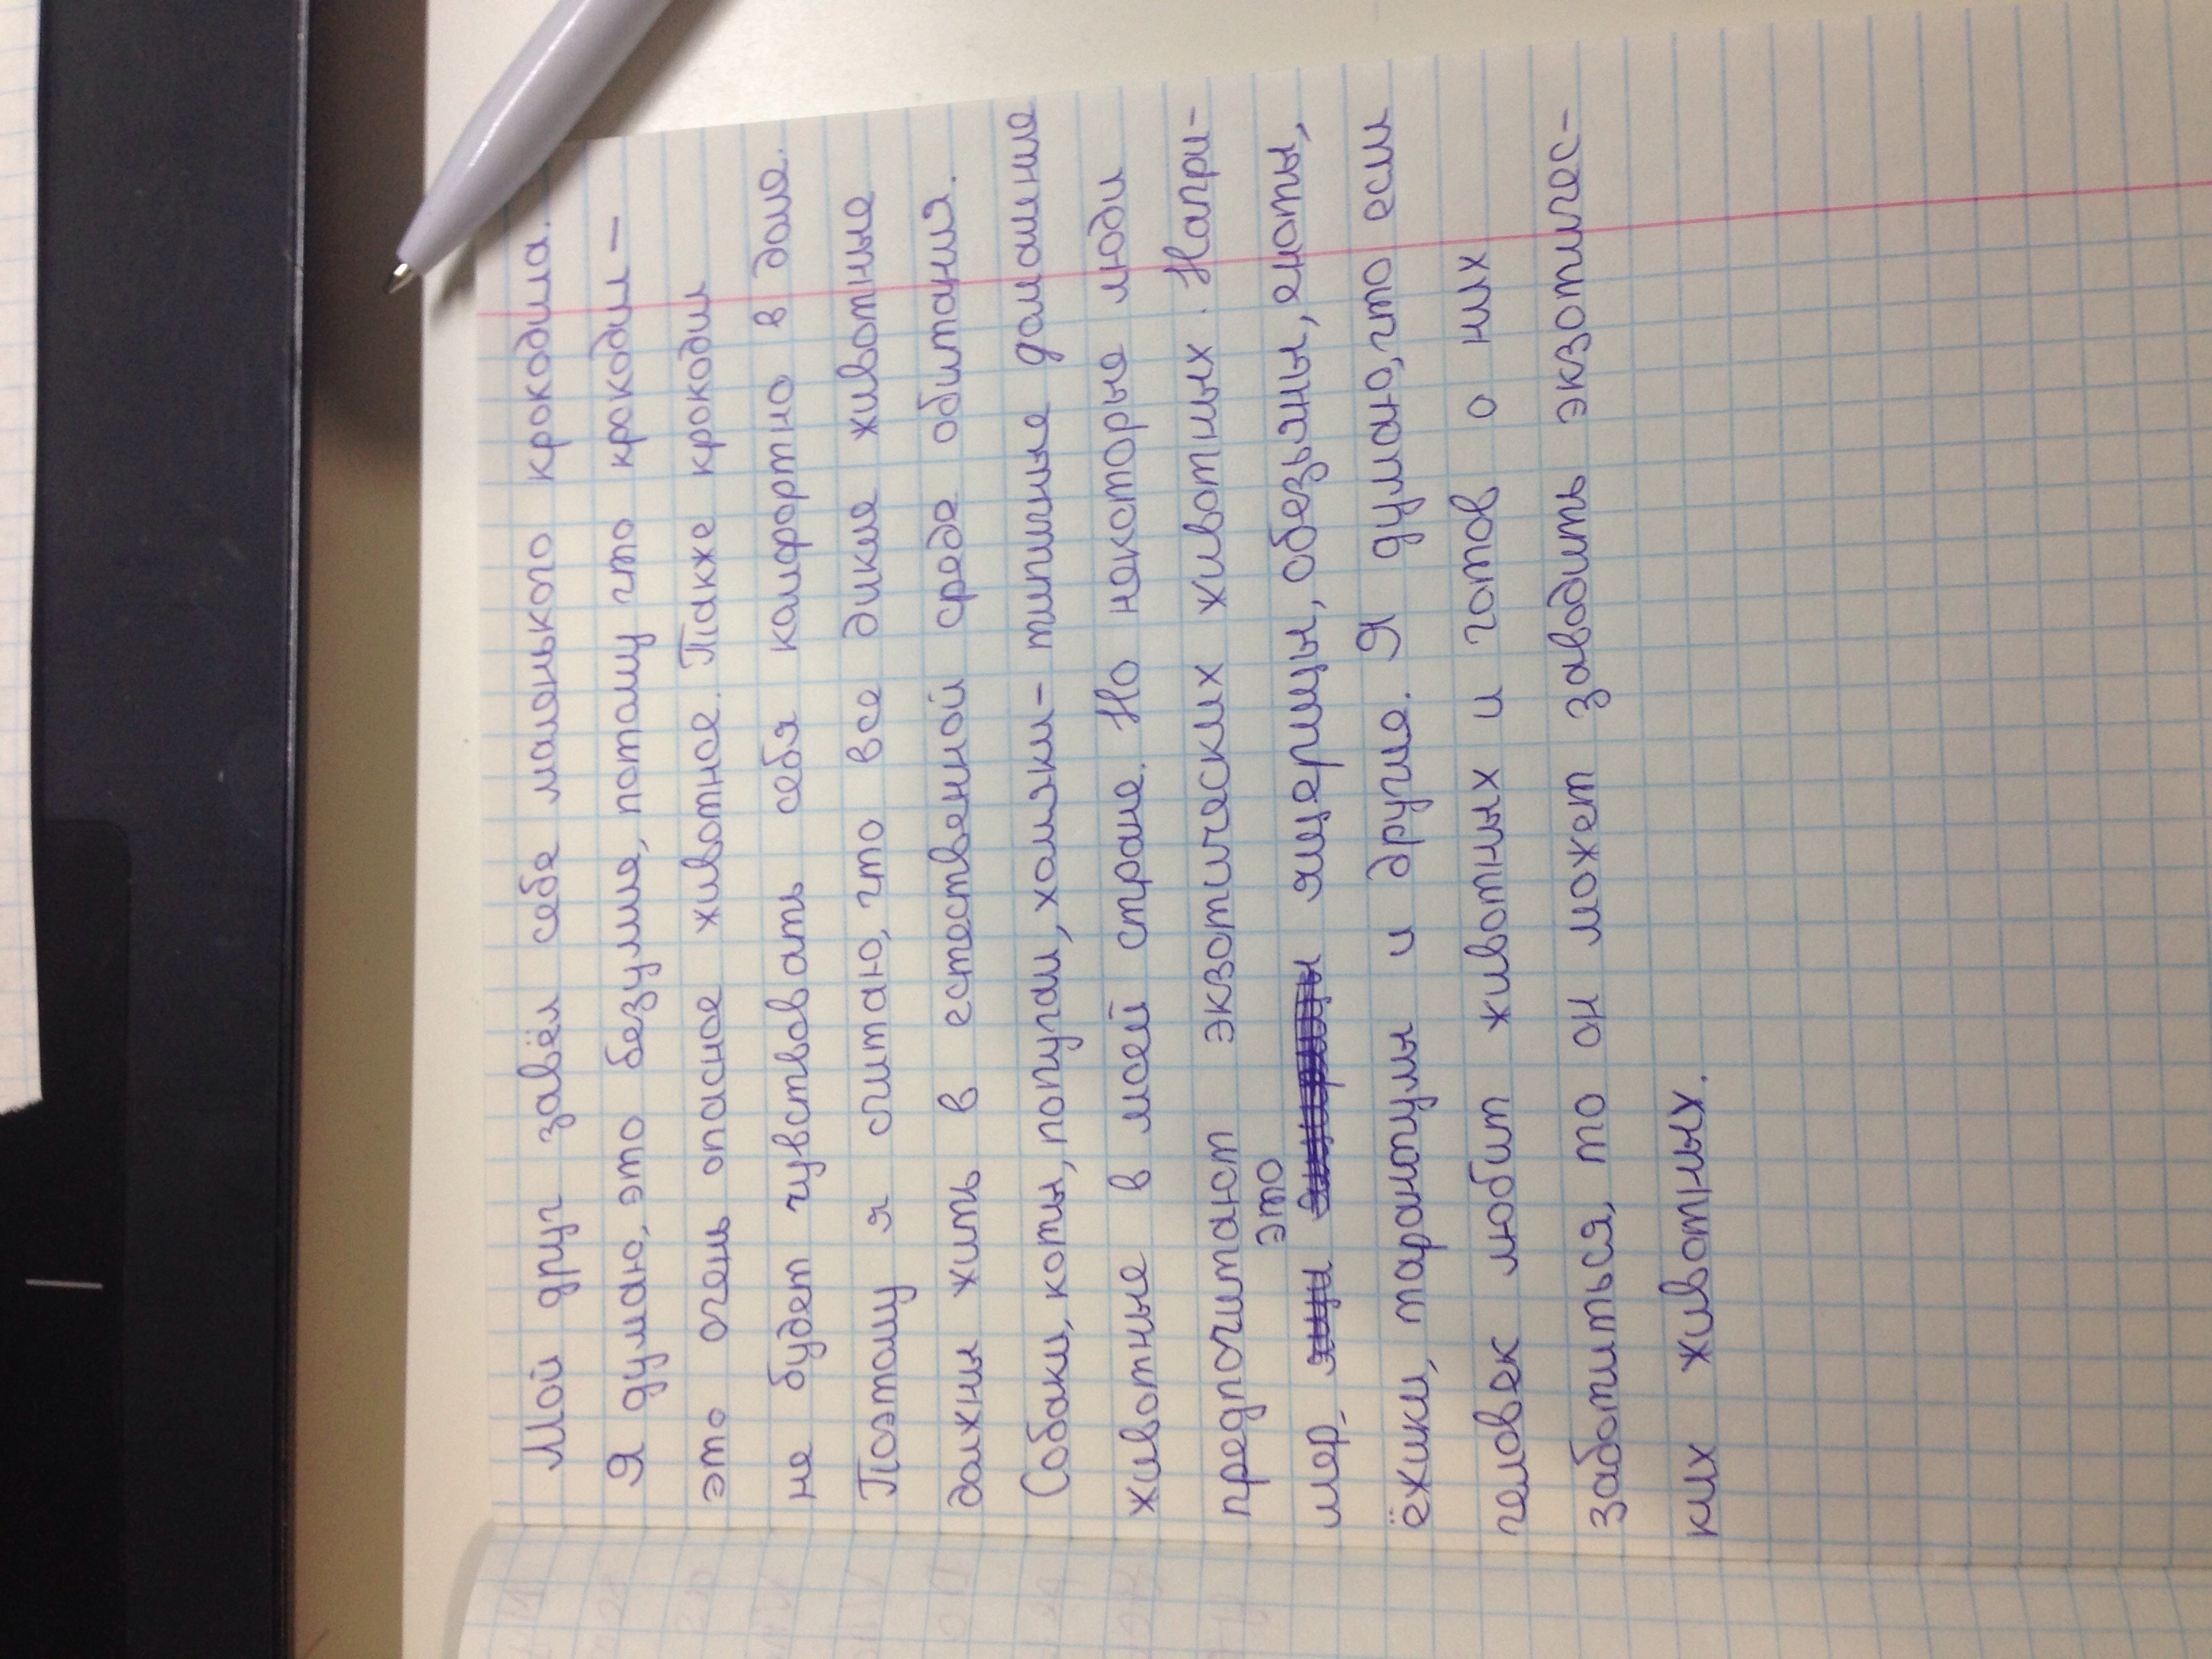 Мой друг завёл себе маленького крокодила.
Я думаю, это безумие, потому что крокодил –
это очень опасное животное. Также крокодил
не будет чувствовать себя комфортно в доме.
Поэтому я считаю, что все дикие животные
должны жить в естественной среде обитания.
Собаки, коты, попугаи, хомяки – типичные домашние
животные в моей стране. Но некоторые люди
предпочитают экзотических животных. Напри-
это
мер, ящерицы, обезьяны, еноты,
ёжики, тарантулы и другие. Я думаю, что если
человек любит животных и готов о них
заботиться, то он может заводить экзотичес-
ких животных.